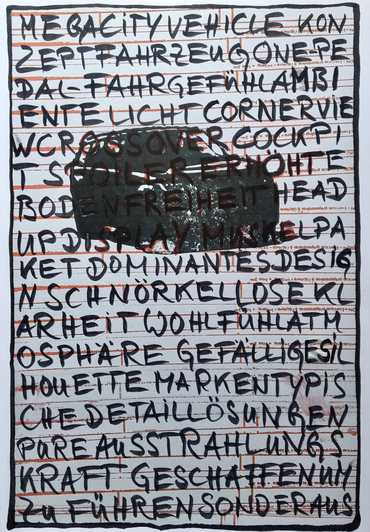 MEGACITYVEHICLE KON
ZEPTFAHRZEUGONE-PE
DAL-FAHRGEFÜHLAMBI
ENTE LICHT CORNERVIE
WCROSSOVER COCKPI
T SPOILER ERHÖHTE
BODENFREIHEIT HEAD
UPDISPLAY MUSKELPA
KET DOMINANTESDESIG
N SCHNÖRKELLOSE KL
ARHEIT WOHLFÜHLATM
OSPHÄRE GEFÄLLIGESIL
HOUETTE MARKENTYPIS
CHE DETAILLÖSUNGEN
PURE AUSSTRAHLUNGS
KRAFT GESCHAFFEN UM
ZU FÜHREN SONDERAUS